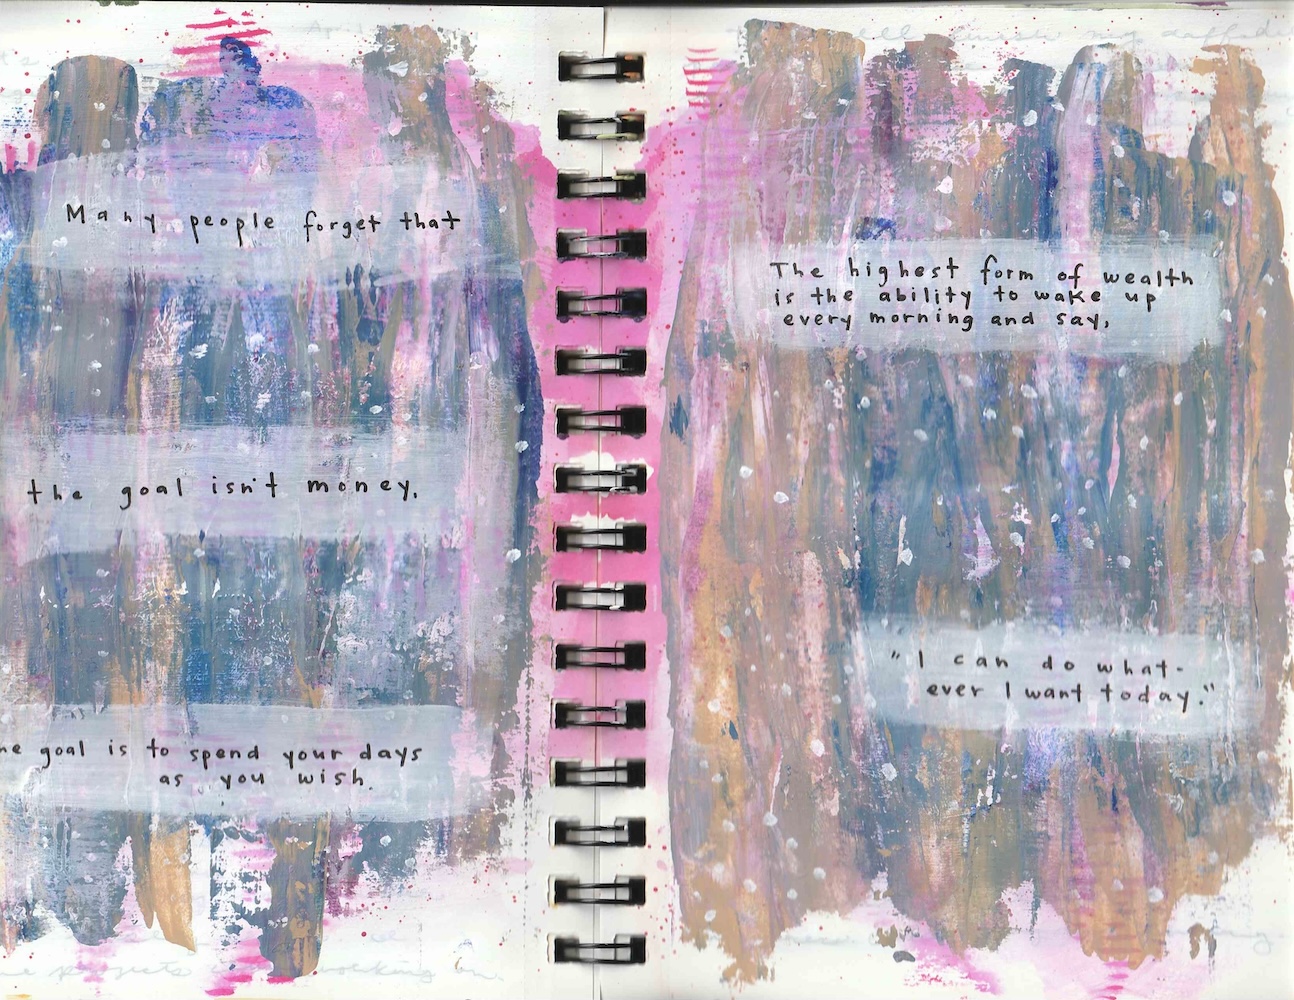 Many people forget that
the goal isn't money,
he goal is to spend your days
as you wish.
The highest form of wealth
is the ability to wake up
every morning and say,
"I can do what-
ever I want today."